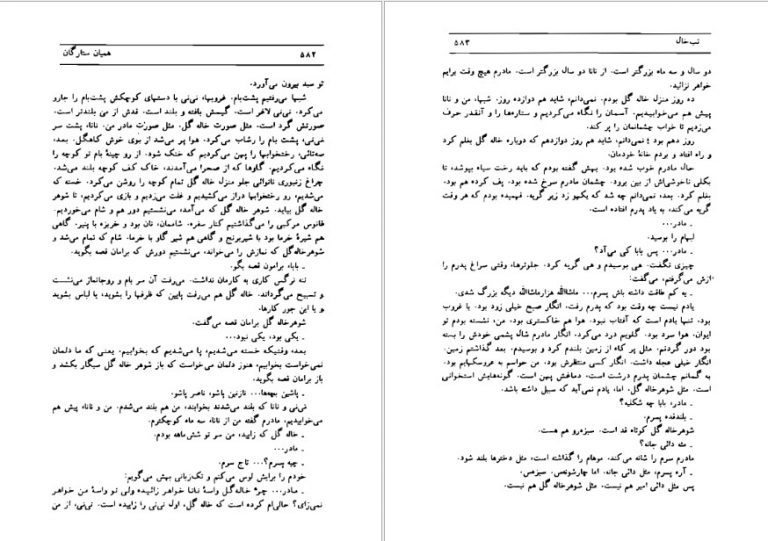 ۵۸۲ همیان ستارگان
تو سبد بیرون می‌آورد.
شبها می‌رفتیم پشت‌بام. غروبها، نی‌نی با دستهای کوچکش پشت‌بام را جارو
می‌کرد. نی‌نی لاغر است. گیسش بافته و بلند است. قدش از من بلندتر است.
صورتش گرد است. مثل صورت خاله گل. مثل صورت مادر من. نانا، پشت سر
نی‌نی، پشت بام را رشاب می‌کرد. هوا پر می‌شد از بوی خوش کاهگل. بعد،
سه‌تائی، رختخوابها را پهن می‌کردیم که خنک شود. از رو چینهٔ بام تو کوچه را
نگاه می‌کردیم. گاوها که از صحرا می‌آمدند، خاک کف کوچه بلند می‌شد.
چراغ زنبوری نانوائی جلو منزل خاله گل تمام کوچه را روشن می‌کرد. خسته که
می‌شدیم، رو رختخوابها دراز می‌کشیدیم و غلت می‌زدیم و بازی می‌کردیم، تا شوهر
خاله گل بیاید. شوهر خاله گل که می‌آمد، می‌نشستیم دور هم و شام می‌خوردیم.
فانوس مرکبی را می‌گذاشتیم کنار سفره. شاممان، نان بود و خربزه یا پنیر. گاهی
هم شیرهٔ خرما بود با شیربرنج و گاهی هم شیر گاو با خرما. شام که تمام می‌شد و
شوهرخاله‌گل که نمازش را می‌خواند، می‌نشستیم دورش که برامان قصه بگوید.
ـ بابا، برامون قصه بگو.
ننه نرگس کاری به کارمان نداشت. می‌رفت آن سر بام و روجانماز می‌نشست
و تسبیح می‌گرداند. خاله گل هم می‌رفت پایین که ظرفها را بشوید، یا لباس بشوید
و یا این جور کارها.
شوهرخاله‌گل برامان قصه می‌گفت.
ـ یکی بود، یکی نبود...
بعد، وقتیکه خسته می‌شدیم، پا می‌شدیم که بخوابیم، یعنی که ما دلمان
نمی‌خواست بخوابیم، هنوز دلمان می‌خواست که باز شوهر خاله گل سیگار بکشد و
باز برامان قصه بگوید.
ـ پاشین بچه‌ها... نازنین پاشو، ناصر پاشو.
نی‌نی و نانا که بلند می‌شدند بخوابند، من هم بلند می‌شدم. من و نانا، پیش هم
می‌خوابیدیم. مادرم گفته من از نانا، سه ماه کوچکترم.
ـ خاله گل که زایید، من سر تو شش‌ماهه بودم.
ـ مادر...
ـ چیه پسرم؟... تاج سرم.
خودم را برایش لوس می‌کنم و تک‌زبانی بهش می‌گویم:
ـ مادر... چرا خاله‌گل واسهٔ نانا خواهر زائیده ولی تو واسهٔ من خواهر
نمی‌زای؟ حالی‌ام کرده است که خاله گل، اول نی‌نی را زاییده است. نی‌نی، از من
تب‌خال ۵۸۳
دو سال و سه ماه بزرگتر است. از نانا دو سال بزرگتر است. مادرم هیچ وقت برایم
خواهر نزائید.
ده روز منزل خاله گل بودم. نمی‌دانم، شاید هم دوازده روز. شبها، من و نانا
پیش هم می‌خوابیدیم. آسمان را نگاه می‌کردیم و ستاره‌ها را و آنقدر حرف
می‌زدیم تا خواب چشمانمان را پر کند.
روز دهم بود؛ نمی‌دانم، شاید هم روز دوازدهم که دوباره خاله گل بغلم کرد
و راه افتاد و بردم خانهٔ خودمان.
حال مادرم خوب شده بود. بهش گفته بودم که باید رخت سیاه بپوشد، تا
بکلی ناخوشی‌اش از بین برود. چشمان مادرم سرخ شده بود. پف کرده هم بود.
بغلم کرد. بعد، نمی‌دانم چه شد که یکهو زد زیر گریه. فهمیده بودم که هر وقت
گریه می‌کند، به یاد پدرم افتاده است.
ـ مادر...
لبهام را بوسید.
ـ مادر... پس بابا کی می‌آد؟
چیزی نگفت. هی بوسیدم و هی گریه کرد. جلوترها، وقتی سراغ پدرم را
ازش می‌گرفتم، می‌گفت:
ـ یه کم طاقت داشته باش پسرم... ماشاالله هزارماشاالله دیگه بزرگ شدی.
یادم نیست چه وقت بود که پدرم رفت. انگار صبح خیلی زود بود. یا غروب
بود. تنها یادم است که آفتاب نبود. هوا هم خاکستری بود. من، نشسته بودم تو
ایوان. هوا سرد بود. گلویم درد می‌کرد. انگار مادرم شال پشمی خودش را بسته
بود دور گردنم. مثل پر کاه از زمین بلندم کرد و بوسیدم. بعد گذاشتم زمین.
انگار خیلی عجله داشت. انگار کسی منتظرش بود. من حواسم به عروسکهایم بود.
به گمانم چشمان پدرم درشت است. دماغش پهن است. گونه‌هایش استخوانی
است. مثل شوهرخاله گل. اما، یادم نمی‌آید که سبیل داشته باشد.
ـ مادر، بابا چه شکلیه؟
ـ بلندقده پسرم.
شوهرخاله گل کوتاه قد است. سبزه‌رو هم هست.
ـ مثه دائی جانه؟
مادرم سرم را شانه می‌کند. موهام را گذاشته است، مثل دخترها بلند شود.
ـ آره پسرم، مثل دائی جانه. اما چارشونه‌س. سبزه‌س.
پس مثل دائی امیر هم نیست. مثل شوهرخاله گل هم نیست.